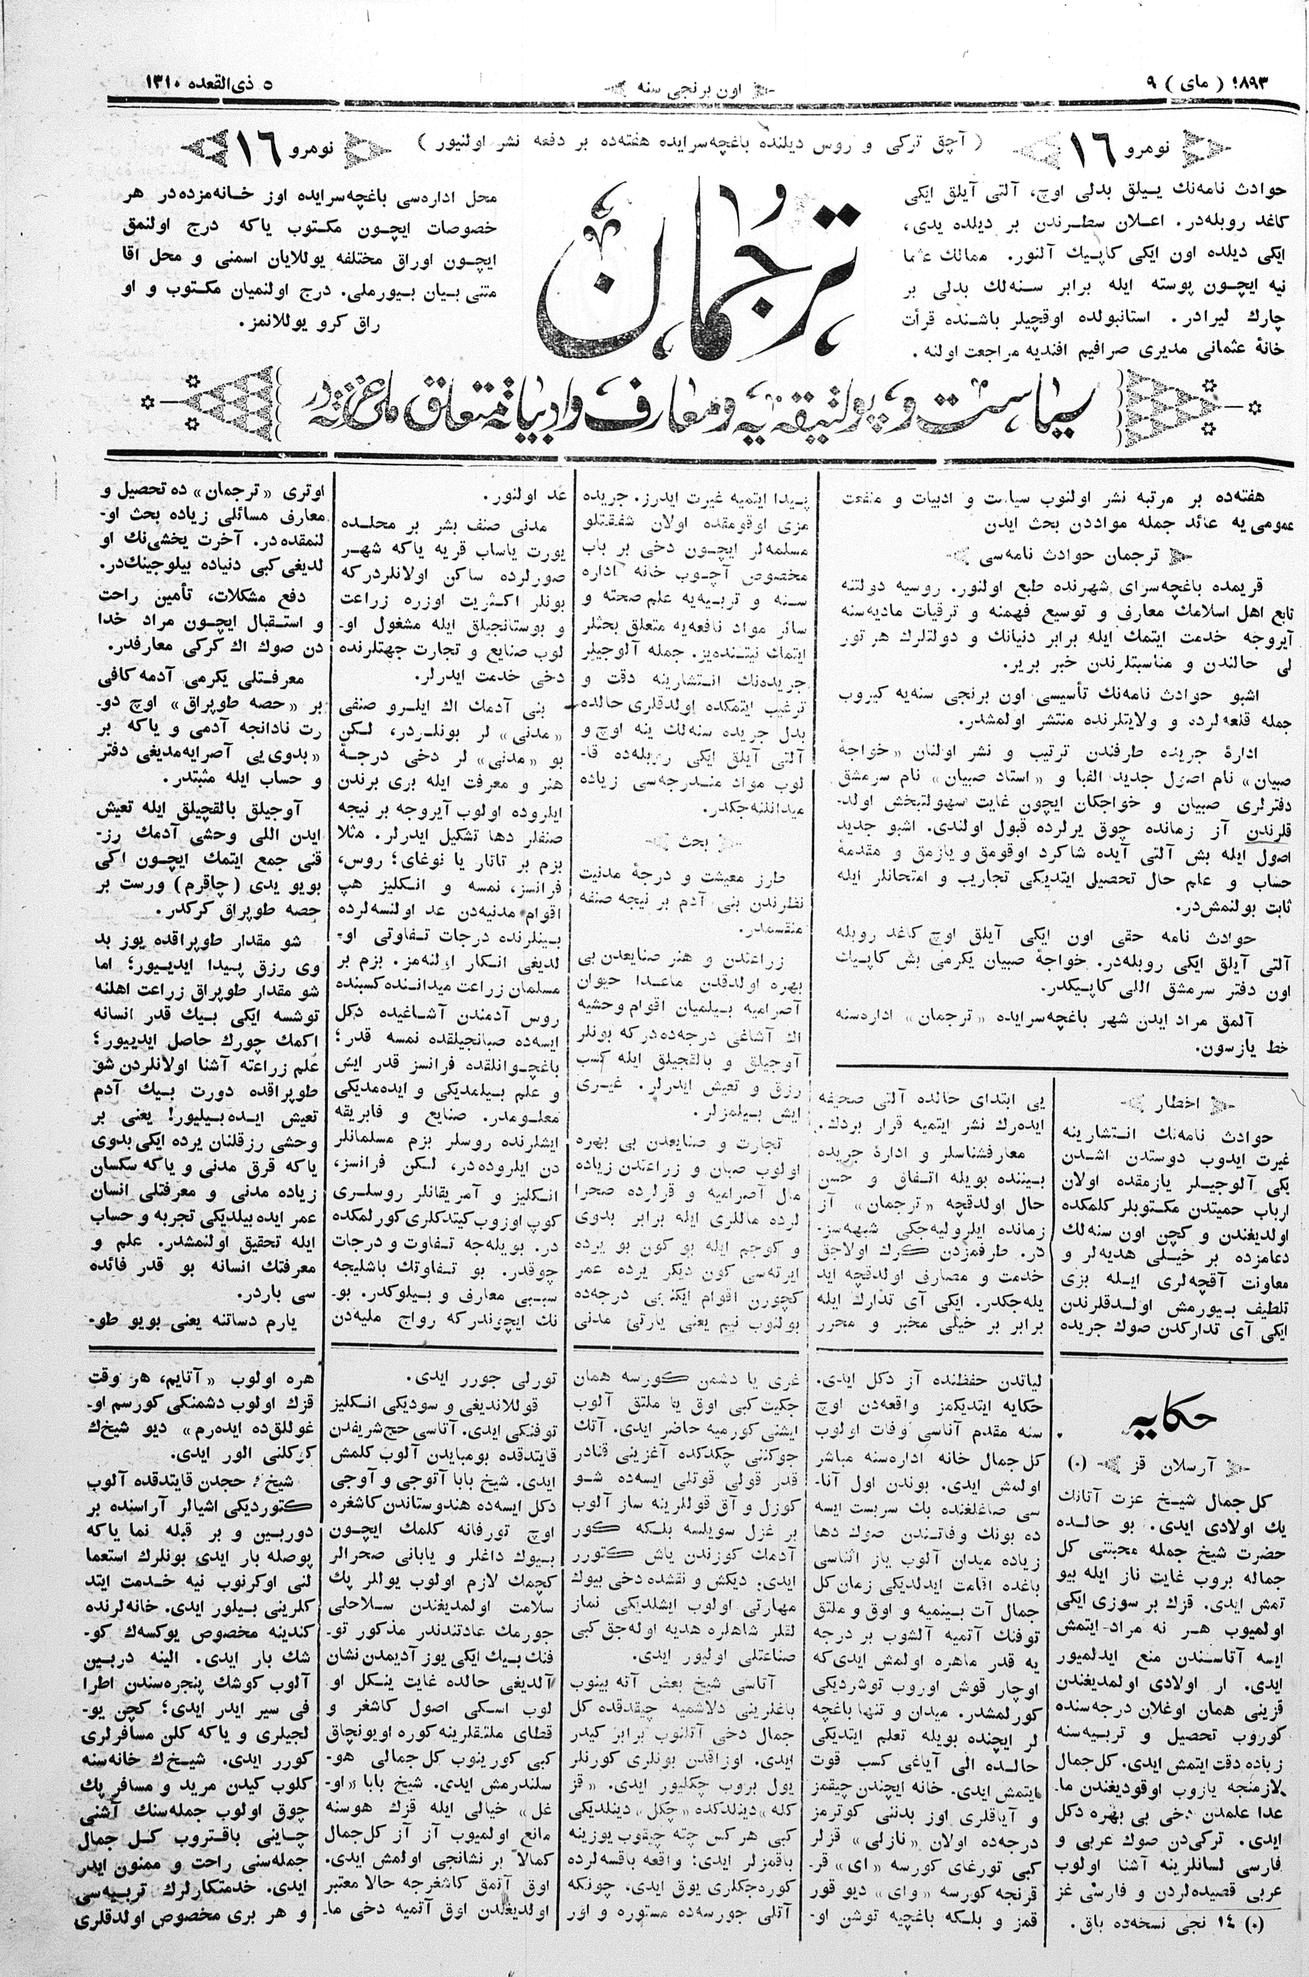 ١٨٩٣ ( مای ) ٩
اون برنجی سنه
٥ ذی القعده ١٣١٠
نومرو ١٦
( آچق ترکی و روس دیلنده باغچه‌سرایده هفته‌ده بر دفعه نشر اولنیور )
نومرو ١٦
حوادث نامه‌نك ییللق بدلی اوچ، آلتی آیلق ایکی
کاغد روبله‌در. اعلان سطرندن بر دیلده یدی،
ایکی دیلده اون ایکی کاپیك آلنور. ممالك عثما
نیه ایچون پوسته ایله برابر سنه‌لك بدلی بر
چارك لیرادر. استانبولده اوقچیلر باشنده قرأت
خانهٔ عثمانی مدیری صرافیم افندیه مراجعت اولنه.
ترجمان
محل اداره‌سی باغچه‌سرایده اوز خانه‌مزده‌در هر
خصوصات ایچون مکتوب یاکه درج اولنمق
ایچون اوراق مختلفه یوللایان اسمنی و محل اقا
متنی بیان بیورملی. درج اولنمیان مکتوب و او
راق کرو یوللانمز.
سیاست و پولتیقه‌یه و معارف و ادبیاته متعلق ملی غزته‌در
هفته‌ده بر مرتبه نشر اولنوب سیاست و ادبیات و منفعت
عمومی یه عائد جمله مواددن بحث ایدن
ترجمان حوادث نامه‌سی
قریمده باغچه‌سرای شهرنده طبع اولنور. روسیه دولتنه
تابع اهل اسلامك معارف و توسیع فهمنه و ترقیات مادیه‌سنه
آیروجه خدمت ایتمك ایله برابر دنیانك و دولتلرك هر تور
لی حالندن و مناسبتلرندن خبر بریر.
اشبو حوادث نامه‌نك تأسیسی اون برنجی سنه‌یه کیروب
جمله قلعه‌لرده و ولایتلرنده منتشر اولمشدر.
ادارهٔ جریده طرفندن ترتیب و نشر اولنان «خواجهٔ
صبیان» نام اصول جدید الفبا و «استاد صبیان» نام سرمشق
دفترلری صبیان و خواجکان ایچون غایت سهولتبخش اولد-
قلرندن آز زمانده چوق یرلرده قبول اولندی. اشبو جدید
اصول ایله بش آلتی آیده شاکرد اوقومق و یازمق و مقدمهٔ
حساب و علم حال تحصیل ایتدیکی تجاریب و امتحانلر ایله
ثابت بولنمش‌در.
حوادث نامه حقی اون ایکی آیلق اوچ کاغد روبله
آلتی آیلق ایکی روبله‌در. خواجهٔ صبیان یکرمی بش کاپیك
اون دفتر سرمشق اللی کاپیکدر.
آلمق مراد ایدن شهر باغچه‌سرایده «ترجمان» اداره‌سنه
خط یازسون.
اخطار
حوادث نامه‌نك انتشارینه
غیرت ایدوب دوستدن اشدن
یکی آلوجیلر یازمقده اولان
ارباب حمیتدن مکتوبلر کلمکده
اولدیغندن و کچن اون سنه‌لك
دعامزده بر خیلی هدیه‌لر و
معاونت آقچه‌لری ایله بزی
تلطیف بیورمش اولدقلرندن
ایکی آی تدارکدن صوك جریده
یی ابتدای حالده آلتی صحیفه
ایده‌رك نشر ایتمیه قرار بردك.
معارفشناسلر و ادارهٔ جریده
بیننده بویله اتفاق و حسن
حال اولدقچه «ترجمان» آز
زمانده ایلرولیه‌جکی شبهه‌سز-
در. طرفمزدن کرك اولاجق
خدمت و مصارف اولدقچه اید
یله‌جکدر. ایکی آی تدارك ایله
برابر بر خیلی مخبر و محرر
پیدا ایتمیه غیرت ایدرز. جریده
مزی اوقومقده اولان شفقتلو
مسلمه‌لر ایچون دخی بر باب
مخصوص آچوب خانه اداره
سنه و تربیه‌یه علم صحته و
سائر مواد نافعه‌یه متعلق بحثلر
ایتمك نیتنده‌یز. جمله آلوجیلر
جریده‌نك انتشارینه دقت و
ترغیب ایتمکده اولدقلری حالده
بدل جریده سنه‌لك ینه اوچ و
آلتی آیلق ایکی روبله‌ده قا-
لوب مواد مندرجه‌سی زیاده
میدانلنه‌جکدر.
بحث
طرز معیشت و درجهٔ مدنیت
نظرندن بنی آدم بر نیجه صنفه
منقسمدر.
زراعتدن و هنر صنایعدن بی
بهره اولدقدن ماعدا حیوان
آصرامیه بیلمیان اقوام وحشیه
اك آشاغی درجه‌ده‌در که بونلر
آوجیلق و بالقجیلق ایله کسب
رزق و تعیش ایدرلر. غیری
ایش بیلمزلر.
تجارت و صنایعدن بی بهره
اولوب صبان و زراعتدن زیاده
مال آصرامیه و قرلرده صحرا
لرده ماللری ایله برابر بدوی
و کوچم ایله بو کون بو یرده
ایرته‌سی کون دیکر یرده عمر
کچورن اقوام ایکنجی درجه‌ده
بولنوب نیم یعنی یارتی مدنی
عد اولنور.
مدنی صنف بشر بر محلده
یورت یاساب قریه یاکه شهر
صورلرده ساکن اولانلردرکه
بونلر اکثریت اوزره زراعت
و بوستانجیلق ایله مشغول او-
لوب صنایع و تجارت جهتلرنده
دخی خدمت ایدرلر.
بنی آدمك اك ایلرو صنفی
«مدنی» لر بونلردر، لکن
بو «مدنی» لر دخی درجهٔ
هنر و معرفت ایله بری برندن
ایلروده اولوب آیروجه بر نیجه
صنفلر دها تشکیل ایدرلر. مثلا
بزم بر تاتار یا نوغای؛ روس،
فرانسز، نمسه و انکلیز هپ
اقوام مدنیه‌دن عد اولنسه‌لرده
بینلرنده درجات تفاوتی او-
لدیغی انکار اولنه‌مز. بزم بر
مسلمان زراعت میداننده کسبنده
روس آدمندن آشاغیده دکل
ایسه‌ده صبانجیلقده نمسه قدر؛
باغچوانلقده فرانسز قدر ایش
و علم بیلمدیکی و ایده‌مدیکی
معلومدر. صنایع و فابریقه
ایشلرنده روسلر بزم مسلمانلر
دن ایلروده‌در، لکن فرانسز،
انکلیز و آمریقانلر روسلری
کوپ اوزوب کیتدکلری کورلمکده
در. بویله‌جه تفاوت و درجات
چوقدر. بو تفاوتك باشلیجه
سببی معارف و بیلوکدر. بو-
نك ایچوندرکه رواج ملیه‌دن
اوتری «ترجمان» ده تحصیل و
معارف مسائلی زیاده بحث او-
لنمقده‌در. آخرت یخشی‌نك او
لدیغی کبی دنیاده بیلوجینك‌در.
دفع مشکلات، تأمین راحت
و استقبال ایچون مراد خدا
دن صوك اك کرکی معارفدر.
معرفتلی یکرمی آدمه کافی
بر «حصه طوپراق» اوچ دو-
رت نادانجه آدمی و یاکه بر
«بدوی‌یی آصرایه‌مدیغی دفتر
و حساب ایله مثبتدر.
آوجیلق بالقچیلق ایله تعیش
ایدن اللی وحشی آدمك رز-
قنی جمع ایتمك ایچون اکی
بویو یدی (چاقرم) ورست بر
حصه طوپراق کرکدر.
شو مقدار طوپراقده یوز بد
وی رزق پیدا ایدیور؛ اما
شو مقدار طوپراق زراعت اهلنه
توشسه ایکی بیك قدر انسانه
اکمك چورك حاصل ایدییور؛
علم زراعته آشنا اولانلردن شو
طوپراقده دورت بیك آدم
تعیش ایده‌بیلیور! یعنی بر
وحشی رزقلنان یرده ایکی بدوی
یاکه قرق مدنی و یاکه سکسان
زیاده مدنی و معرفتلی انسان
عمر ایده بیلدیکی تجربه و حساب
ایله تحقیق اولنمشدر. علم و
معرفتك انسانه بو قدر فائده
سی باردر.
یارم دساتنه یعنی بویو طو-
حکایه
آرسلان قز (٠)
کل جمال شیخ عزت آتانك
یك اولادی ایدی. بو حالده
حضرت شیخ جمله محبتنی کل
جماله بروب غایت ناز ایله بیو
تمش ایدی. قزك بر سوزی ایکی
اولمیوب هر نه مراد ایتمش
ایسه آتاسندن منع ایدلمیور
ایدی. ار اولادی اولمدیغندن
قزینی همان اوغلان درجه‌سنده
کوروب تحصیل و تربیه‌سنه
زیاده دقت ایتمش ایدی. کل‌جمال
لازمنجه یازوب اوقودیغندن ما-
عدا علمدن دخی بی بهره دکل
ایدی. ترکی‌دن صوك عربی و
فارسی لسانلرینه آشنا اولوب
عربی قصیده‌لردن و فارسی غز
(٠) ١٤ نجی نسخه‌ده باق.
لیاتدن حفظنده آز دکل ایدی.
حکایه ایتدیکمز واقعه‌دن اوچ
سنه مقدم آناسی وفات اولوب
کل‌جمال خانه اداره‌سنه مباشر
اولمش ایدی. بوندن اول آنا-
سی صاغلغنده بك سربست ایسه
ده بونك وفاتندن صوك دها
زیاده میدان آلوب یاز اثناسی
باغده اقامت ایدلدیکی زمان کل
جمال آت بینمیه و اوق و ملتق
توفنك آتمیه آلشوب بر درجه
یه قدر ماهره اولمش ایدی‌که
اوچار قوش اوروب توشردیکی
کورلمشدر. میدان و تنها باغچه
لر ایچنده بویله تعلم ایتدیکی
حالده الی آیاغی کسب قوت
ایتمش ایدی. خانه ایچندن چیقمز
و آیاقلری اوز بدننی کوترمز
درجه‌ده اولان «نازلی» قزلر
کبی تورغای کورسه «ای» قر-
قرنجه کورسه «وای» دیو قور
قمز و بلکه باغچیه توشن او-
غری یا دشمن کورسه همان
جکیت کبی اوق یا ملتق آلوب
ایشنی کورمیه حاضر ایدی. آتك
جوکننی چکدکده آغزینی قنادر
قدر قولی قوتلی ایسه‌ده شو
کوزل و آق قوللرینه ساز آلوب
بر غزل سویلسه بلکه کور
آدمك کوزندن یاش کتورر
ایدی. دیکش و نقشده دخی بیوك
مهارتی اولوب ایشلدیکی نماز
لقلر شاهلره هدیه اوله‌جق کبی
صناعتلی اولیور ایدی.
آتاسی شیخ بعض آته بینوب
باغلرینی دلاشمیه چیقدقده کل
جمال دخی آتلانوب برابر کیدر
ایدی. اوزاقدن بونلری کورنلر
یول بروب چکلیور ایدی. «قز
کله» دینلدکده «چکل» دینلدیکی
کبی هر کس چته چیقوب یوزینه
باقمزلر ایدی: واقعه باقسه‌لرده
کوره‌جکلری یوق ایدی، چونکه
آتلی جورسه‌ده مستوره و اور
تورلی جورر ایدی.
قوللاندیغی و سودیکی انکلیز
توفنکی ایدی. آتاسی حج‌شریفدن
قایتدقده بومبایدن آلوب کلمش
ایدی. شیخ بابا آتوجی و آوجی
دکل ایسه‌ده هندوستاندن کاشغره
اوچ تورفانه کلمك ایچون
بیوك داغلر و یابانی صحرالر
کچمك لازم اولوب یوللر پك
سلامت اولمدیغندن سلاحلی
جورمك عادتندندر مذکور تو-
فنك بیك ایکی یوز آدیمدن نشان
آلدیغی حالده غایت ینکل او
لوب اسکی اصول کاشغر و
قطای ملتقلرینه کوره اویونچاق
کبی کورینوب کل جمالی هو-
سلندرمش ایدی. شیخ بابا «او-
غل» خیالی ایله قزك هوسنه
مانع اولمیوب آز آز کل‌جمال
کمالا بر نشانجی اولمش ایدی.
اوق آتمق کاشغرجه حالا معتبر
اولدیغندن اوق آتمیه دخی ما-
هره اولوب «آتایم، هر وقت
قزك اولوب دشمنکی کورسم او-
غوللق‌ده ایده‌رم» دیو شیخ‌ك
کوکلنی الور ایدی.
شیخ حجدن قایتدقده آلوب
کتوردیکی اشیالر آراسنده بر
دوربین و بر قبله نما یاکه
پوصله بار ایدی بونلرك استعما
لنی اوکرنوب نیه خدمت ایتد
کلرینی بیلور ایدی. خانه‌لرنده
کندینه مخصوص یوکسه‌ك کو-
شك بار ایدی. الینه دربین
آلوب کوشك پنجره‌سندن اطرا
فی سیر ایدر ایدی؛ کچن یو-
لجیلری و یاکه کلن مسافرلری
کورر ایدی. شیخ‌ك خانه‌سنه
کلوب کیدن مرید و مسافر پك
چوق اولوب جمله‌سنك آشنی
چاینی باقتروب کل جمال
جمله‌سنی راحت و ممنون ایدر
ایدی. خدمتکارلرك تربیه‌سی
و هر بری مخصوص اولدقلری